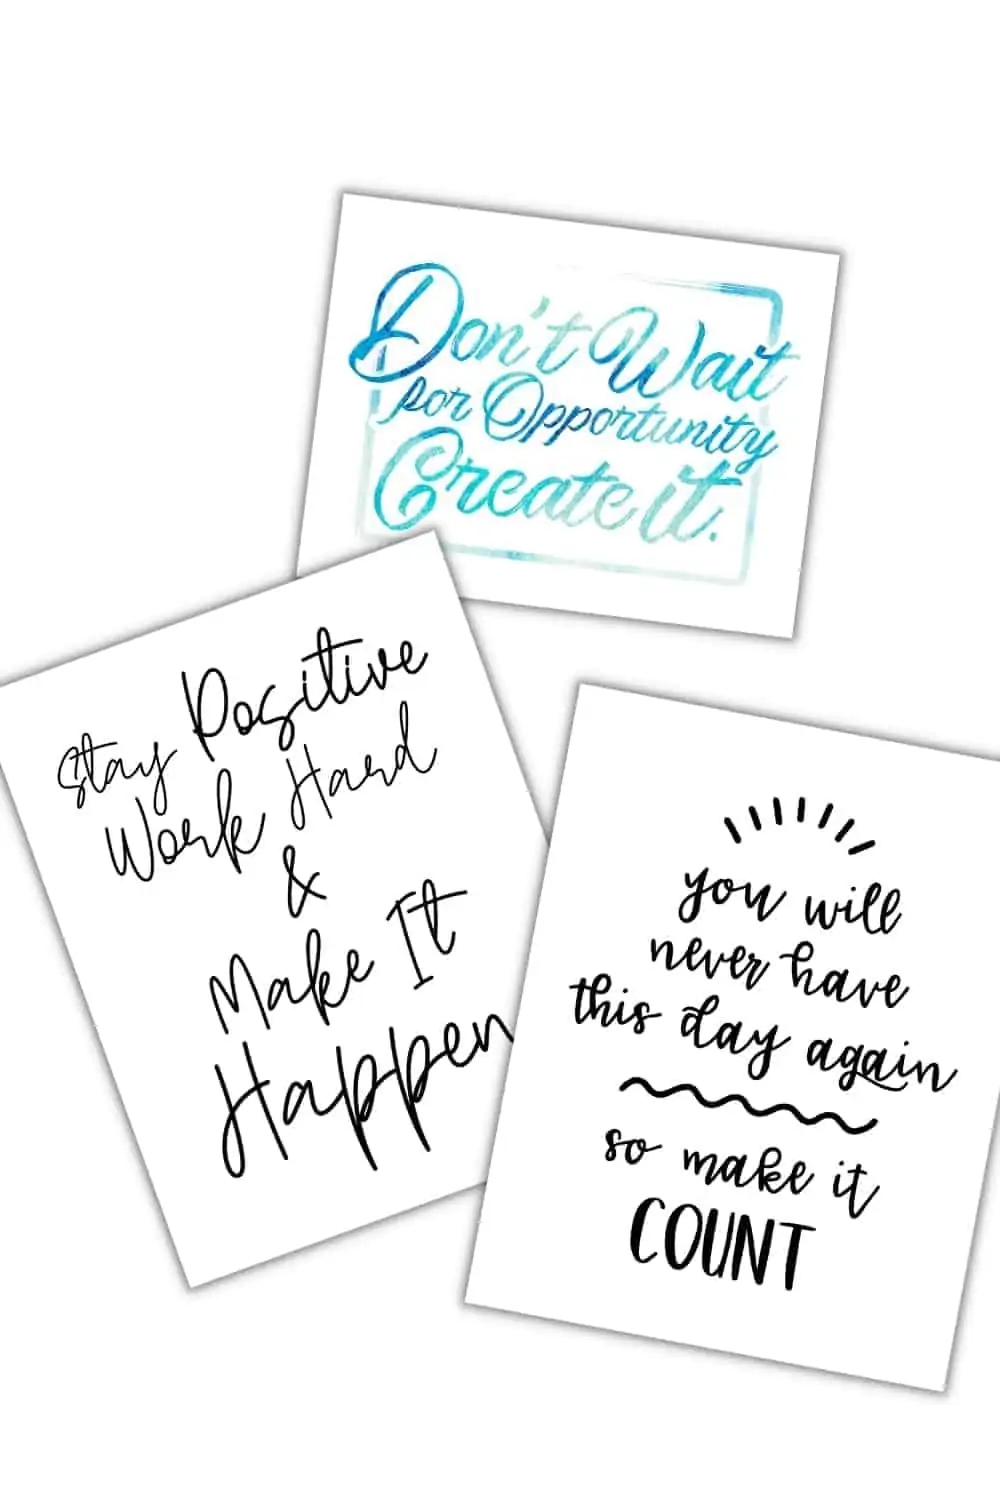 Don't Wait
for Opportunity
Create it.
Stay Positive
Work Hard
&
Make It
Happen
you will
never have
this day again
so make it
COUNT